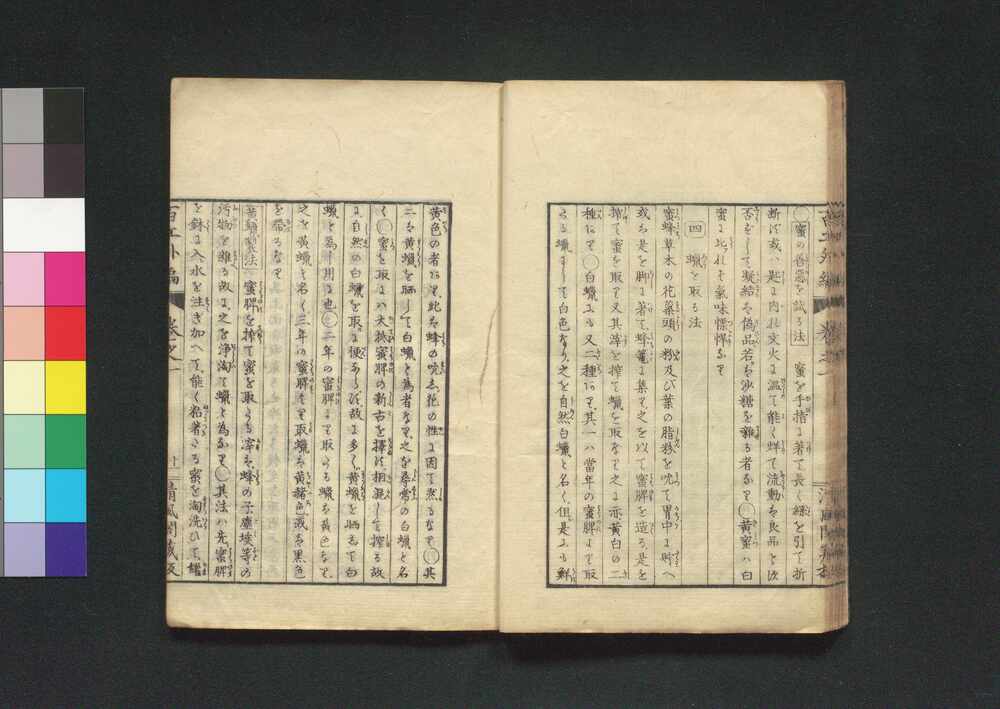 蜜の善惡を試る法 蜜を手指に著て長く線を引て折
断れず或ハ匙に内れ文火に温て能く烊て流動を良品とす
否ずして凝結を偽品若ハ沙糖を雜る者なり 黄蜜ハ白
蜜に比れバ氣味慓悍なり
四 蠟を取る法
蜜蜂草木の花蘂頭の粉及び葉の脂粉を吮て胃中に貯へ
或ハ是を脚に著て蜂窠に集て之を以て蜜脾を造る是を
搾て蜜を取て又其滓を搾て蠟を取なり之に亦黄白の二
種にて 白蠟にも又二種にて其一ハ当年の蜜脾より取
たる蠟にして白色なり之を自然白蠟と名く但是にも鮮
黄色の者にて此ハ蜂の吮る花の性に因て然るなり 其
二ハ黄蠟を晒して白蠟と為者なり之を尋常の白蠟と名
く 蜜を取にハ大抵蜜脾の新古を擇ず相混して搾る故
に自然の白蠟を取に便あらず故に多く黄蠟を晒して白
蠟と為し用る也 二年の蜜脾より取たる蠟ハ黄色なり
之を黄蠟と名く三年の蜜脾より取蠟ハ黄赭色或ハ黒色
を帯るなり
黄蠟製法 蜜脾を搾て蜜を取たる滓ハ蜂の子塵埃等の
汚物を雜る故に之を淨淘て蠟と為なり 其法ハ先蜜脾
を鉢に入水を注ぎ加へて能く粘著たる蜜を淘洗ひて
百工外編 卷之一 十一 清風閣蔵板